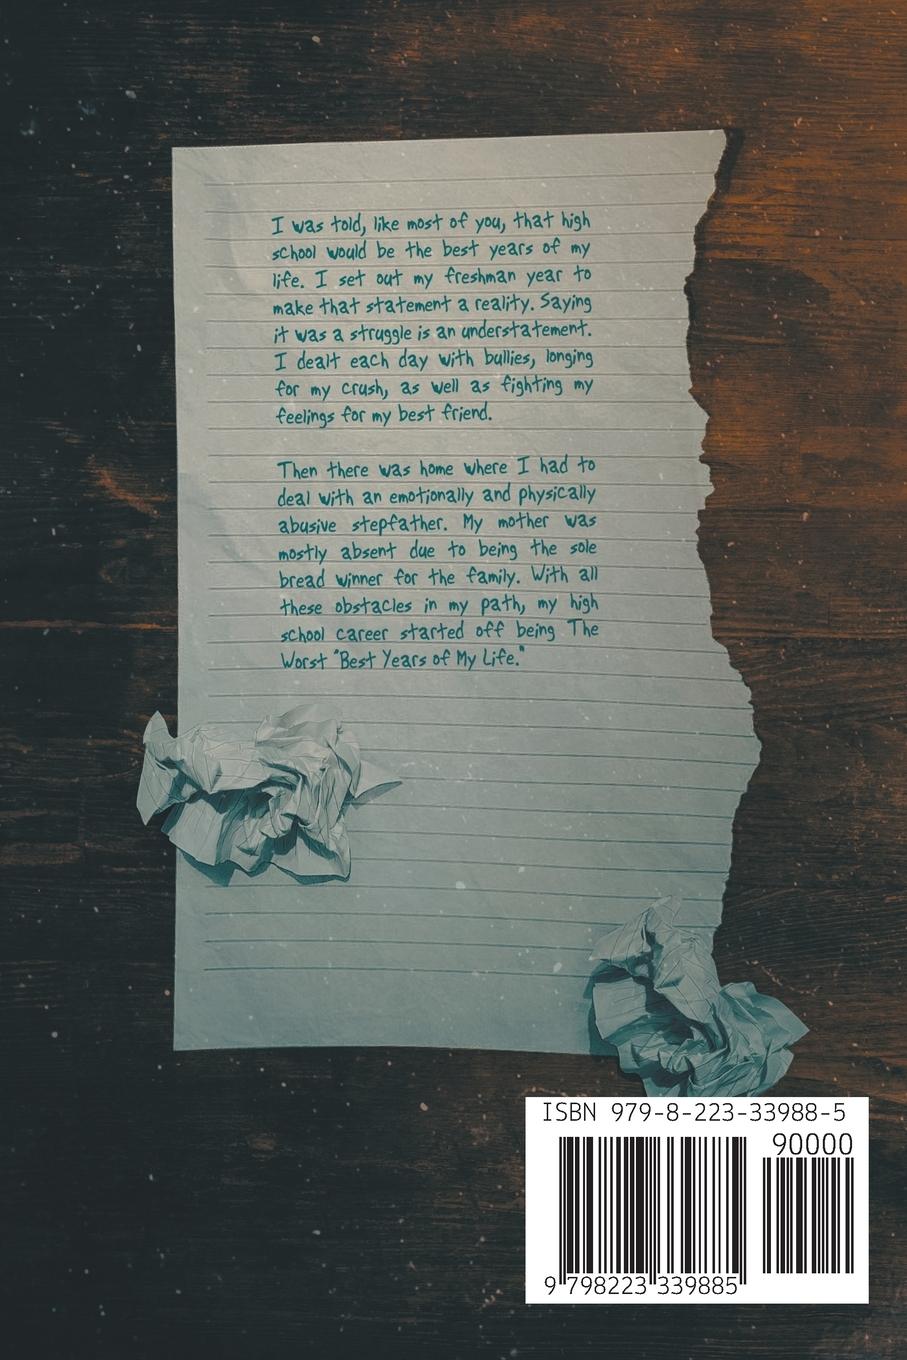 I was told, like most of you, that high
school would be the best years of my
life. I set out my freshman year to
make that statement a reality. Saying
it was a struggle is an understatement.
I dealt each day with bullies, longing
for my crush, as well as fighting my
feelings for my best friend.
Then there was home where I had to
deal with an emotionally and physically
abusive stepfather. My mother was
mostly absent due to being the sole
bread winner for the family. With all
these obstacles in my path, my high
school career started off being The
Worst "Best Years of My Life."
ISBN 979-8-223-33988-5
90000
9 798223 339885